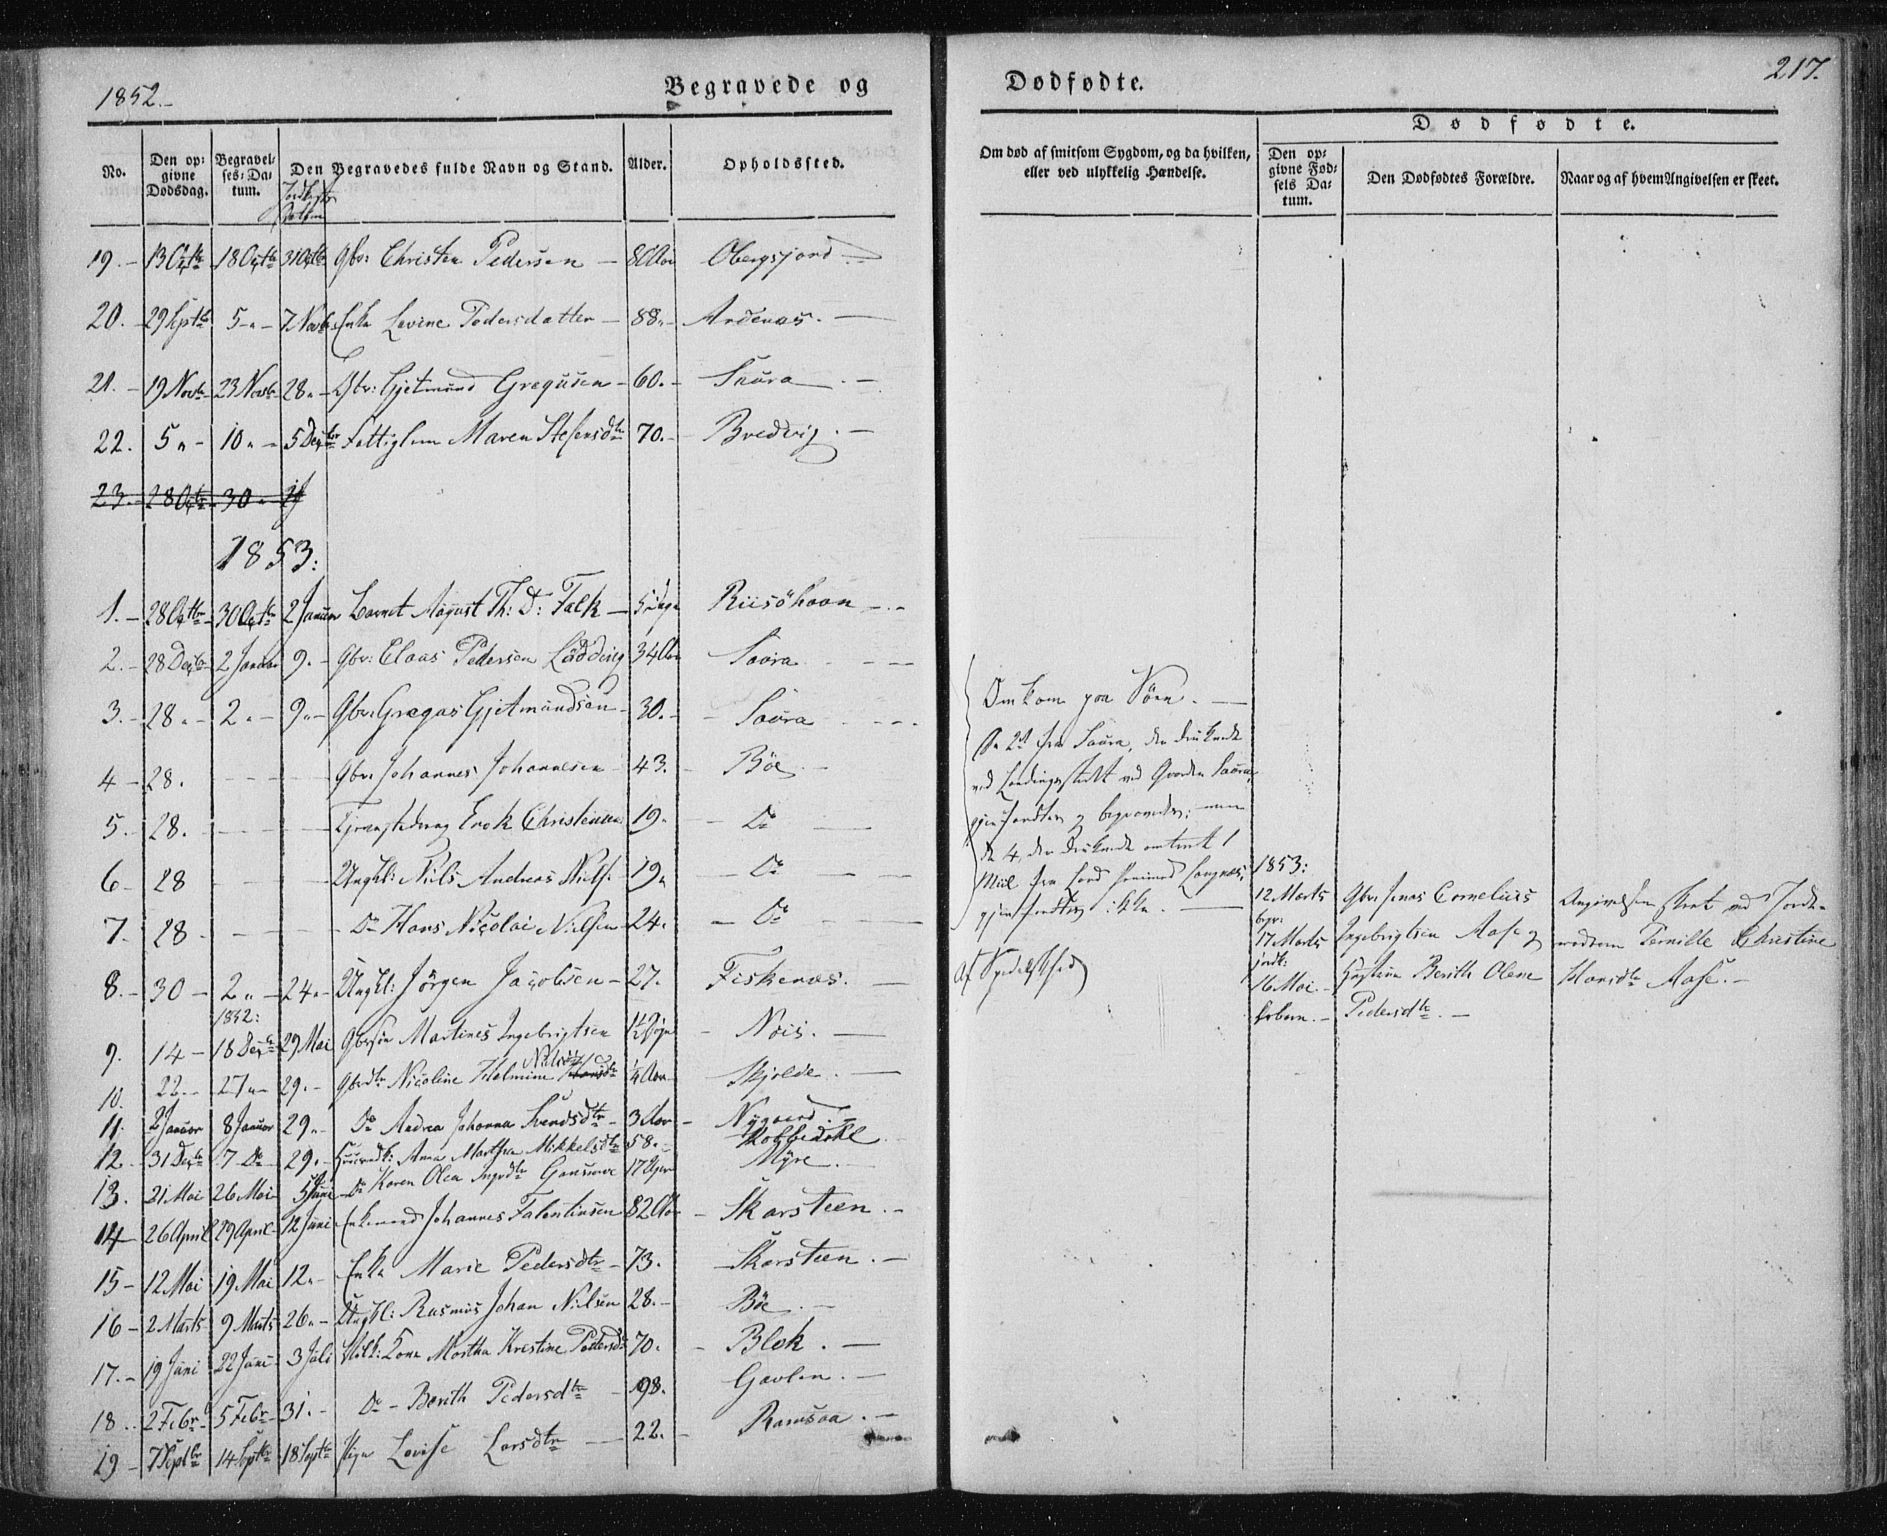 1852.-
Begravede og
No.
Den opgivne Dødsdag.
Begravelses-Datum.
Den Begravedes fulde Navn og Stand.
Alder.
Opholdssted.
19. - 13 Octb 18 Octb 31 Octb Gbr: Christen Pedersen - 80 Aar
20. - 29 Sptb 5 " - 7 Novb Enke Lovine Pedersdatter - 88. - Andenæs. -
21. - 19 Novb 23 Novb 28 " - Gbr: Gjetmund Gregusen - 60. - Saura. -
22. 5 " - 10 " - 5 Decbr Fattiglem Maren Stefensdtr 70. - Bredvig. -
23. - 28 Octb 30 "
1853:
1. - 28 Octbr 30 Octbr 2 Januar Barnet August Th: D: Falk - 5 Dage Riisöhavn -.-
2. - 28 Decbr 2 Januar 9. - Gbr: Claus Pedersen Lödding 34 Aar Saura
3. - 28 " - 2 " - 9 " - Gbr: Gregus Gjetmundsen 30. - Saura
4 - 28. Gbr: Johannes Johannesen 43. - Böe -
5. - 28. Erik Christensen 19. - Do
6 - 28 Ungkl: Nils Andreas Niels. 19 " - Do
7. - 28 - Do Hans Nicolai Nielsen 24. - Do
8. - 30 - 2 " - 24 " - Ungkl: Jörgen Jacobsen - 27. Fiskenæs. -
1852:
9. 14 - 18 Decbr 29 Mai Martines Ingebrigtsen 1½ Nois. -
10. 22. - 27 " - 29. - Gbrdtr Nicoline Helmine Nilsdtr ¼ Aar Skjolde. -
11. 2 Januar 8 Januar 29 " - Do Andrea Johanna Svendsdtr - 3 Aar - Nygaard. -
12. - 31 Decbr 7 Do 29. - Anna Martha Mikkelsdtr 58. -
13. 21 Mai 26 Mai 5 Juni - Do Karen Olea 17 Myre. -
14 - 26 April 29 April 12 Juni Enkemand Johannes Falentinsen 82 Aar - Skarsteen. -
15 - 12 Mai 19 Mai 12 " - Enke Marie Pedersdtr - 73. Skarsteen. -
16 - 2 Marts 9 Marts 26 " - Ungkl: Rasmus Johan Nilsen 28. - Böe. -
17. - 19 Juni 22 Juni 3 Juli Kone Martha Kristine Pedersdtr 70. - Blek. -
18. - 2 Febr 5 Febr 31. - Do - Berith Pedersdtr - 98. Gavlen. -
19 - 7 Septbr 14 Septbr 18 Septbr Pige Lovise Larsdtr - 22. - Ramsaa. -
Dødfødte.
217.
Om død af smitsom Sygdom, og da hvilken, eller ved ulykkelig Hændelse.
Dødfødte.
Den opgivne Fødsels Datum.
Den Dødfødtes Forældre.
Naar og af hvem Angivelsen er skeet.
Omkom paa Söen. -
De 2de fra Saura, der druknede
ved Landingsstedet ved Gaarden Saura,
gjenfandtes og begravedes; men
de 4, der druknede omtrent 1
Miil fra Land
gjenfandtes ikke. -
Af Spedalskhed
1853:
12 Marts
begr:
17 Marts
jordk:
16 Mai. -
Gbr: Jonas Cornelius
Ingebrigtsen Aase og
Hustrue Berith Olene
Pedersdtr. -
Angivelsen skeet ved Jorde-
moderen Pernille Christine
Hansdtr Aase. -